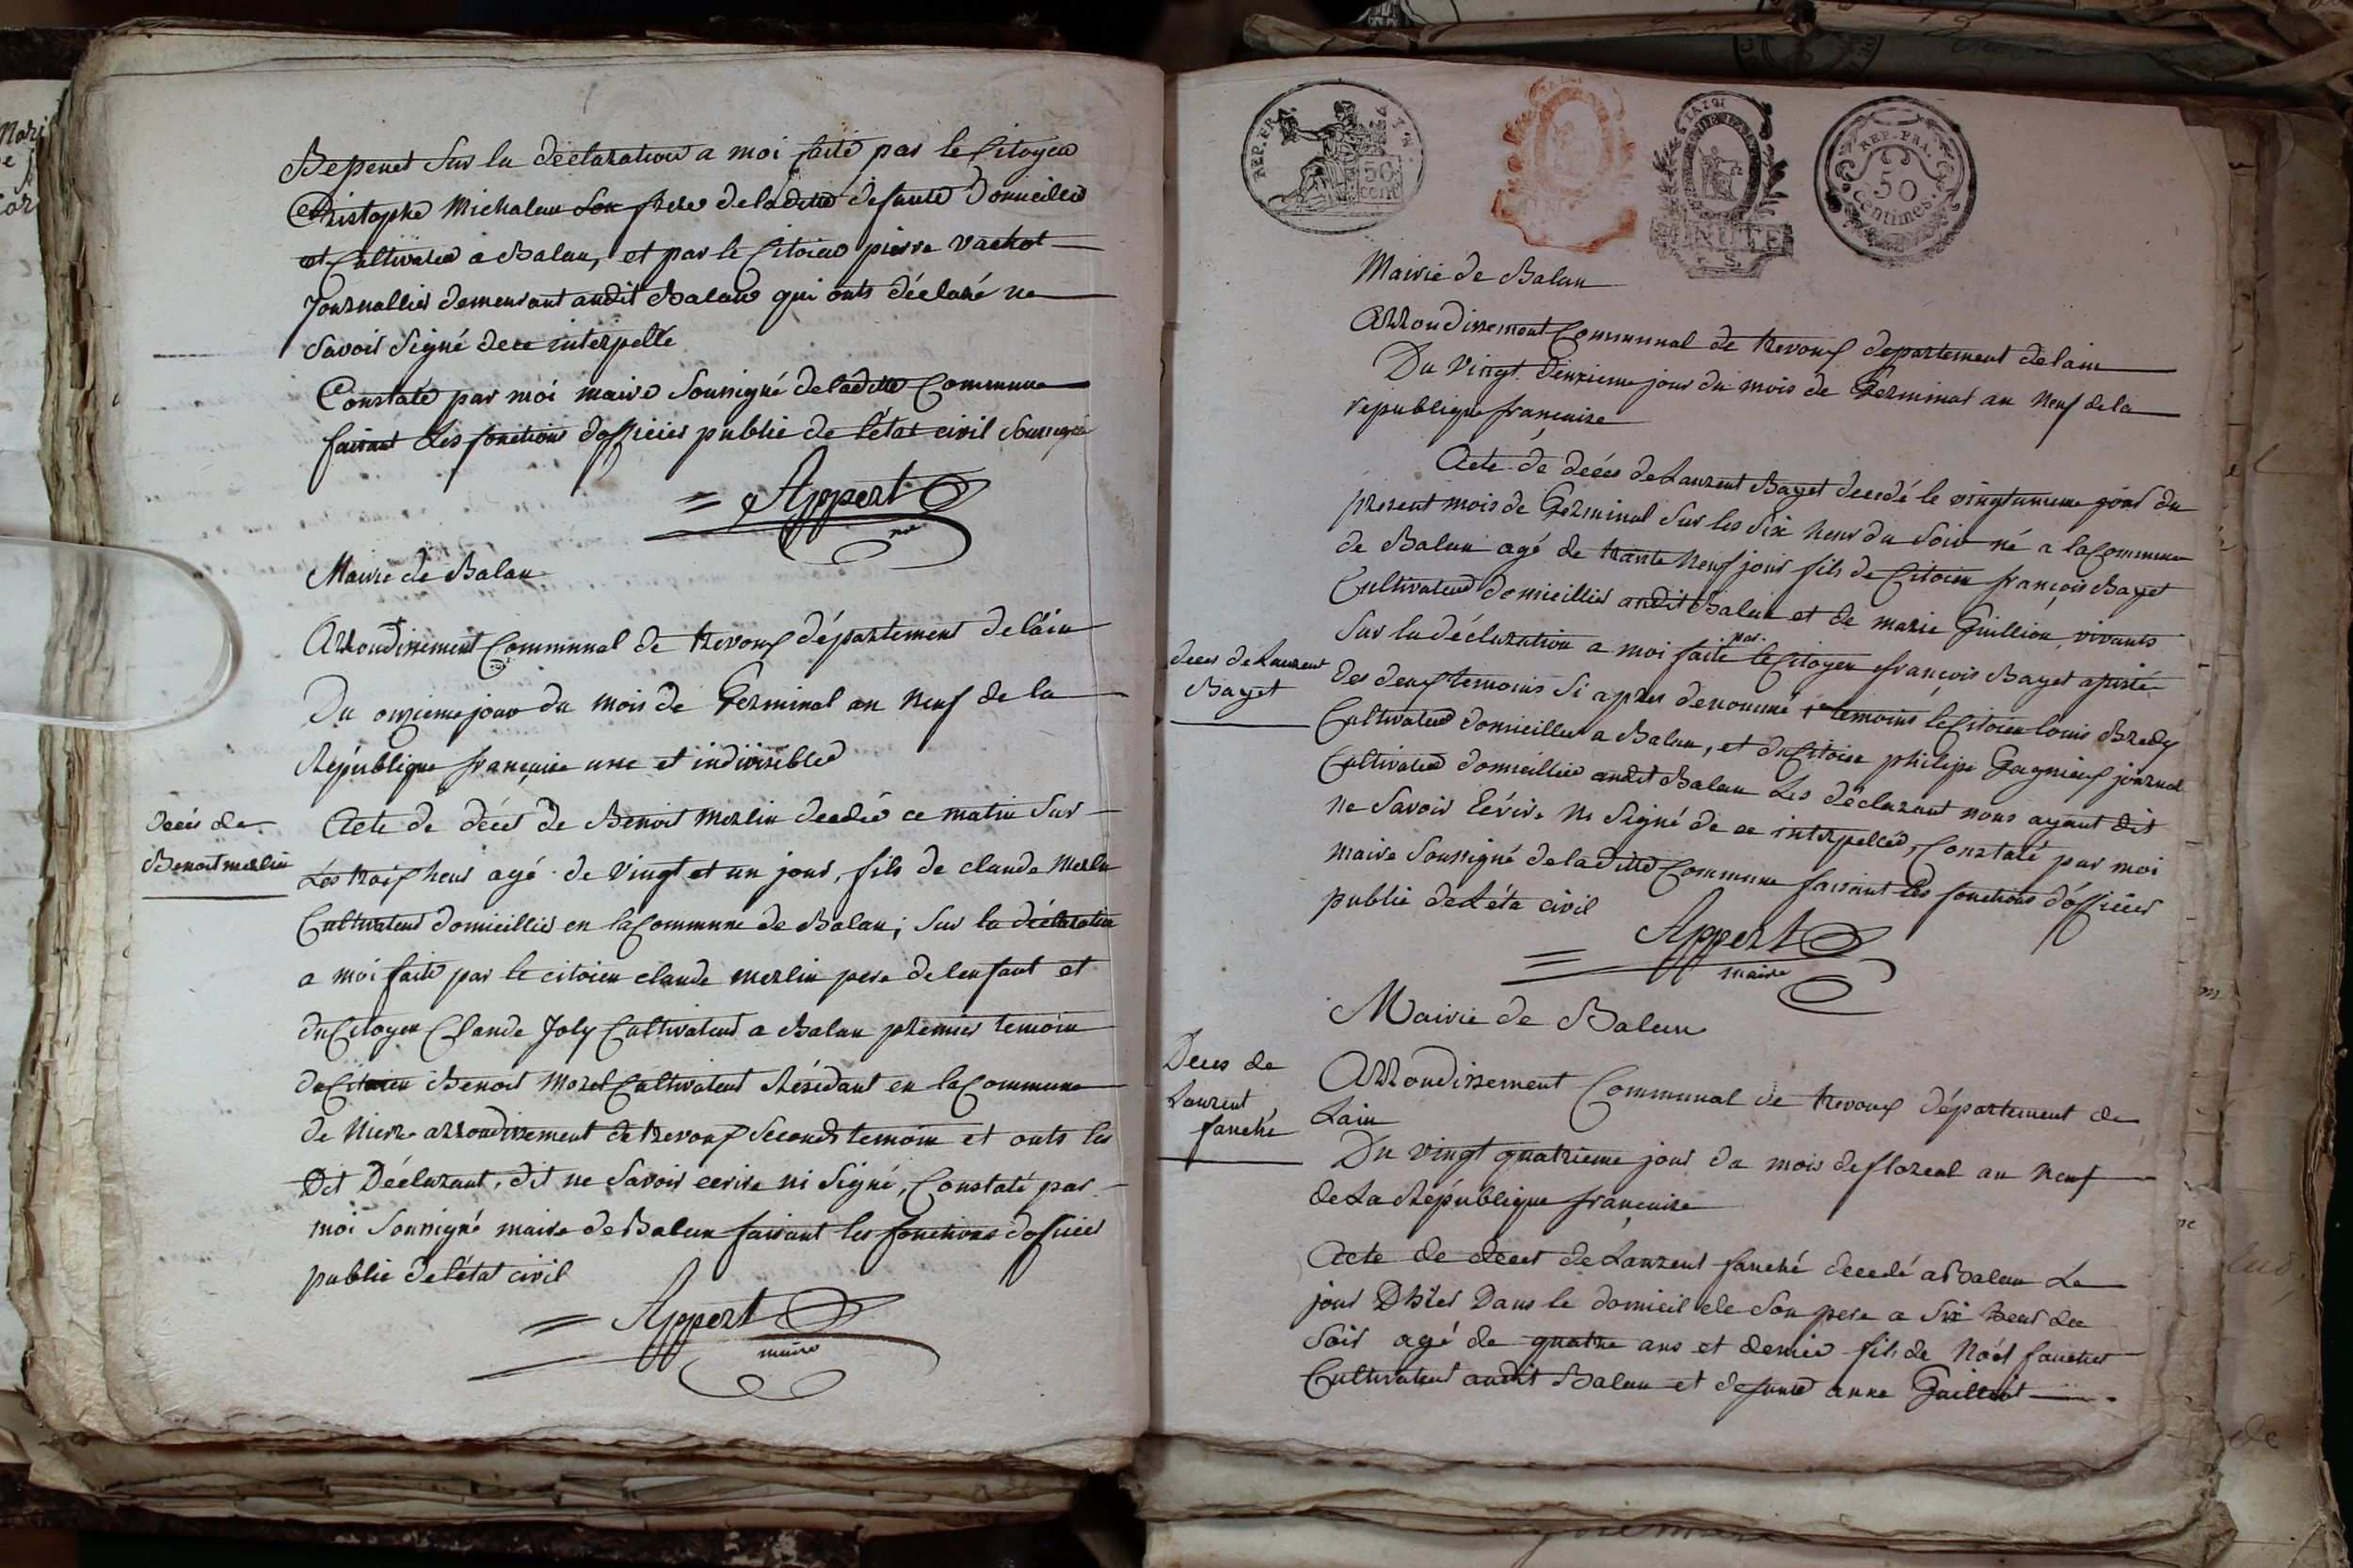 Bepenet Sur la déclaration a moi faite par le Citoyen
Christophe Michalau Son frere de ladite defunte Domicillié
et Cultivateur a Balan, et par le Citoien pierre vachot
Journallier demeurant audit Balan qui onts déclaré ne
Savoir Signé de ce interpellé
Constaté par moi maire Soussigné de laditte Commune
faisant Les fonctions dofficier public de l'état civil Soussigné
Appert
Mairie de Balan
Arrondissement Communal de trevoux département de l'ain
Du onzieme jour du mois de Germinal an neuf de la
République française une et indivisible
Décès de
Benoit merlin
Acte de décet de Benoit merlin decedé ce matin Sur
Les troix heur agé de vingt et un jour, fils de claude Merlin
Cultivateur domicillier en la Commune de Balan; Sur la déclaration
a moi faite par le citoien claude merlin pere de lenfant et
du Citoyen Claude Joly Cultivateur a Balan premier temoin
du Citoien Benoit Morel Cultivateur Résidant en la Commune
de Nievre arrondissement de trevoux Seconds temoin et onts les
Dit Déclarant, dit ne Savoir ecrire ni Signé, Constaté par
moi Soussigné maire de Balan faisant les fonctions dofficier
public de l'état civil
Appert
maire
REP. FRA.
50
cent
REP. FRA.
50
Centimes.
Mairie de Balan
Arrondissement Communal de trevoux departement de lain
Du vingt deuxieme jour du mois de Germinal an Neuf de la
republique française
Acte de décés de Laurent Bayet decedé le vingtunieme jour du
present mois de Germinal Sur les Six heur du Soir né a la Commune
de Balan agé de trante Neuf jour fils de Citoien françois Bayet
Cultivateur domicillier audit Balan et de marie Guillion, vivants
Sur la déclaration a moi faite par le Citoyen françois Bayet
deces de Laurent
Bayet
des deux temoins Si apres denommé 1er temoins le Citoien louis Bredy
Cultivateur domicillier a Balan, et du Citoien philipe Gagnieux journal
Cultivateur domicillier audit Balan Les déclarant nous ayant dit
ne Savoir Ecrire Ni Signé de ce interpelléd, Constaté par moi
maire Soussigné de laditte Commune faisant les fonctions d'officier
public de L'éta civil
Appert
maire
Mairie de Balan
Deces de
Laurent
fauché
Arrondissement Communal de trevoux département de
Lain
Du vingt quatrieme jour du mois de floreal an Neuf
de La République française
Acte de decet de Laurent fauché decedé a Balan Le
jour D'hier Dans le domicil de Son pere a Six heur du
Soir agé de quatre ans et demie fils de Noël fauchet
Cultivateur audit Balan et defunte anne Guilliot